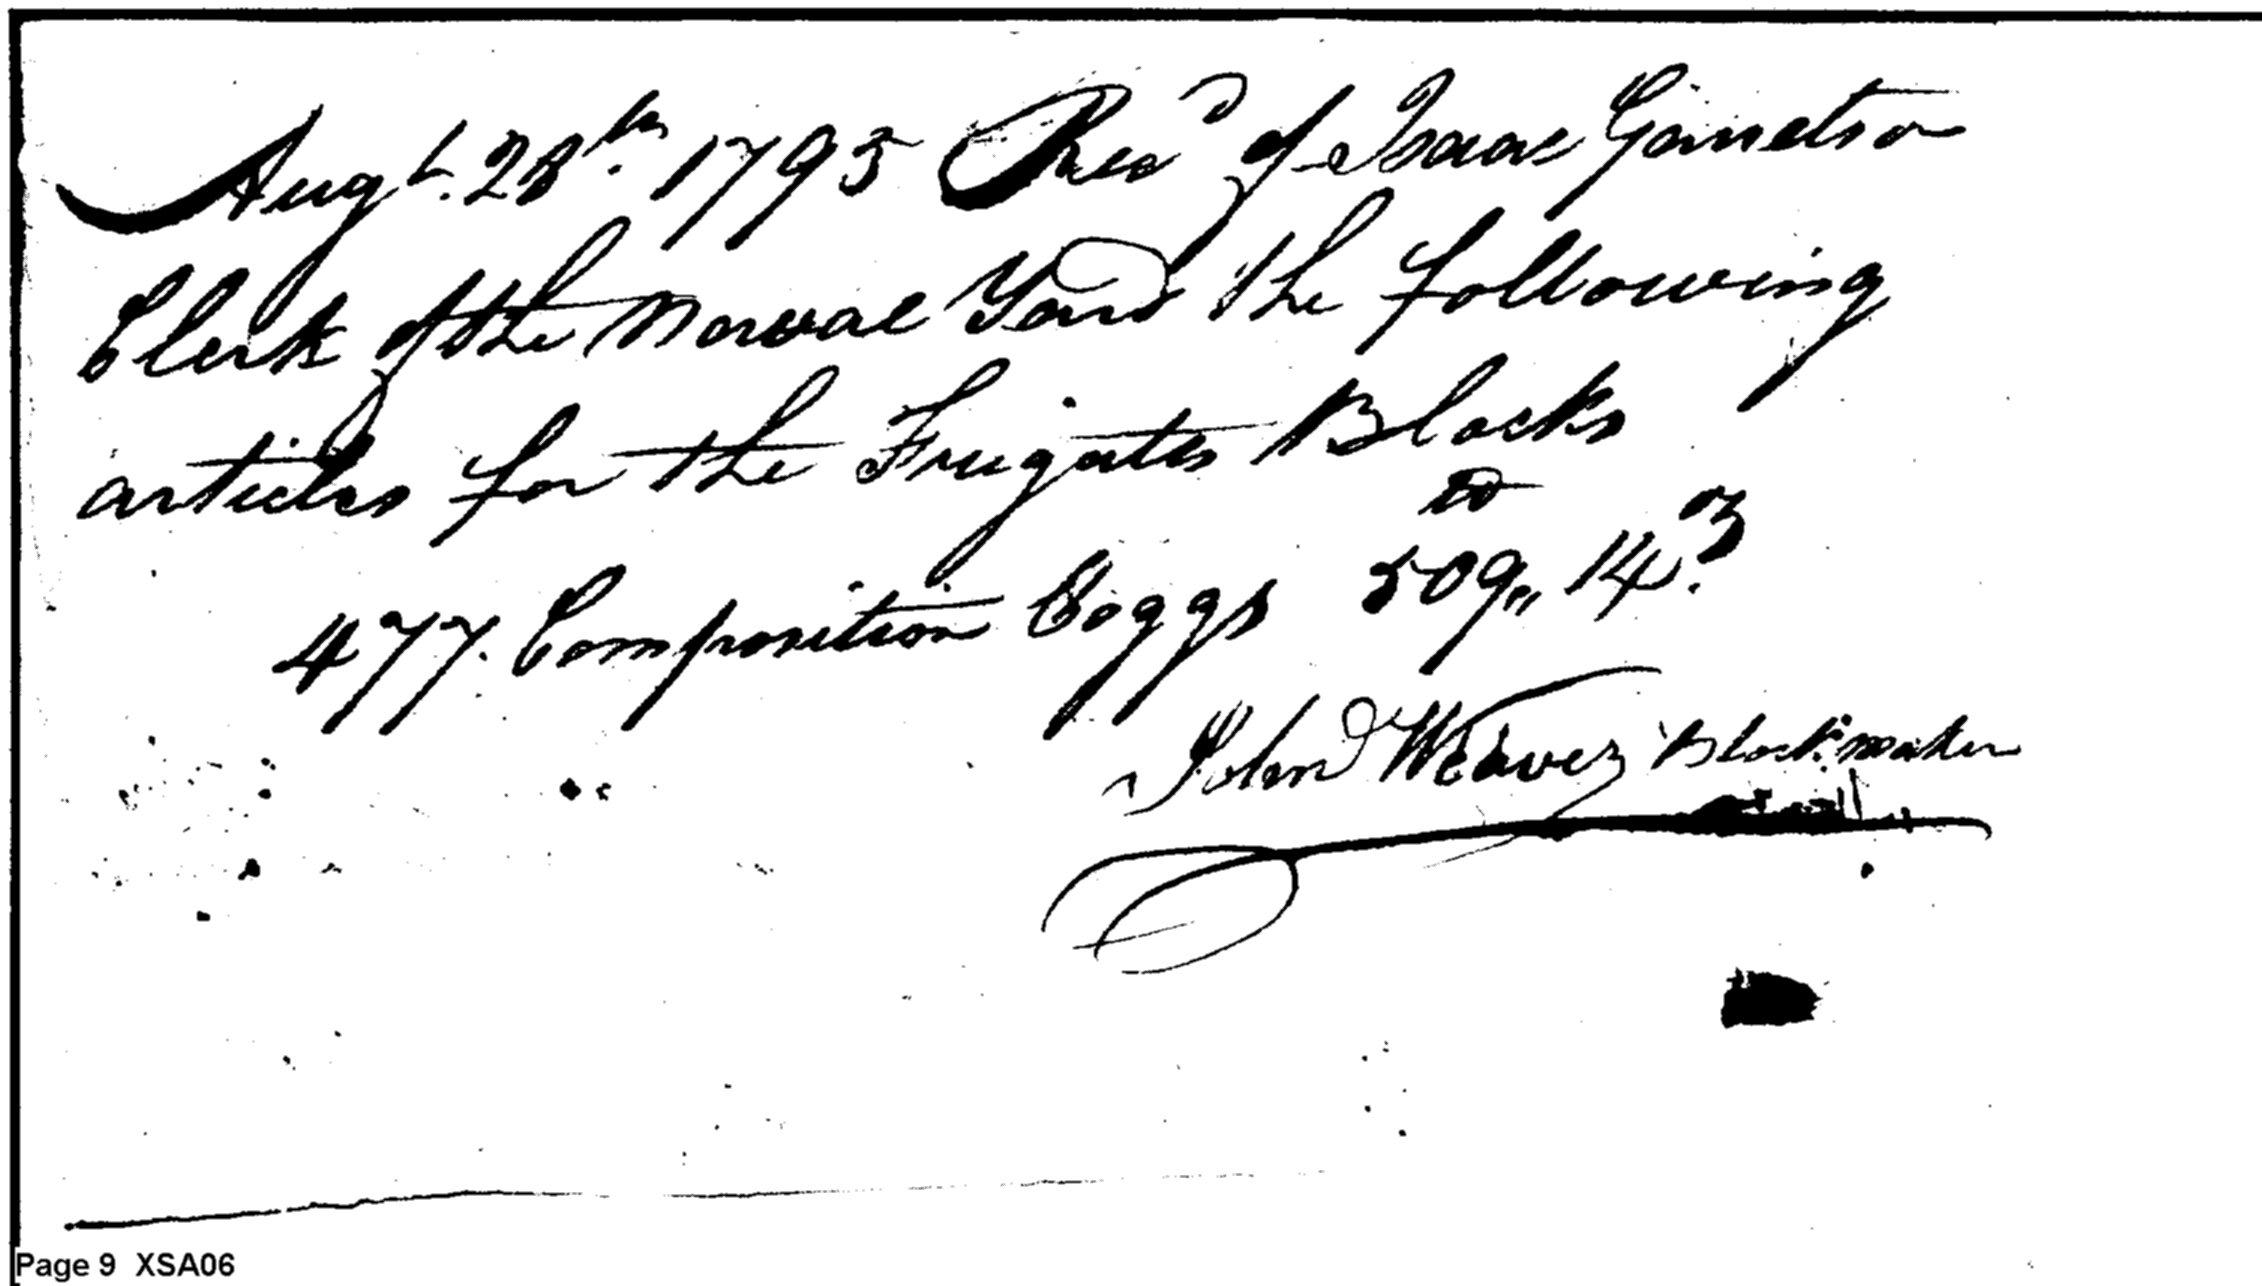 Augt. 28th. 1795 Recd of Isaac Garretson
Clerk of the Naval Yard the following
articles for the Frigates Blocks
477. Composition Coggs 509,, 14.
John Weaver Blockmaker
Page 9 XSA06